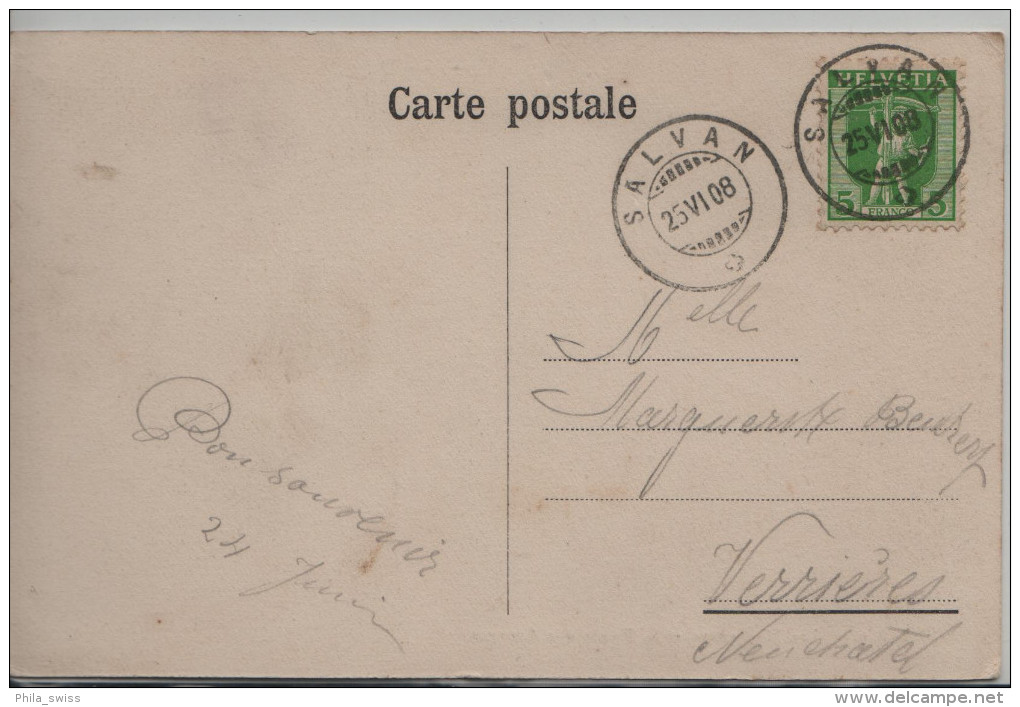 Carte postale
HELVETIA
5 FRANCO 5
SALVAN
25 VI 08
SALVAN
25 VI 08
Bon souvenir
24 Juin
Melle
Marguerite
Verrières
Neuchatel
Phila_swiss
www.delcampe.net